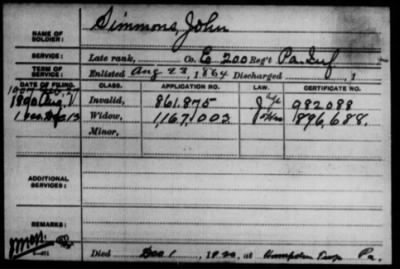 Simmons, John
NAME OF SOLDIER:
SERVICE: Late rank, Co. E 200 Reg't Pa. Inf
TERM OF SERVICE: Enlisted Aug 23, 1864 Discharged , 1
DATE OF FILING. CLASS. APPLICATION NO. LAW. CERTIFICATE NO.
1890 Aug. Invalid, 861.875 982088
Widow, 1,167,003 896,688.
Minor,
ADDITIONAL SERVICES:
REMARKS:
Died Dec 1, 1920, at Hampden Twp Pa.